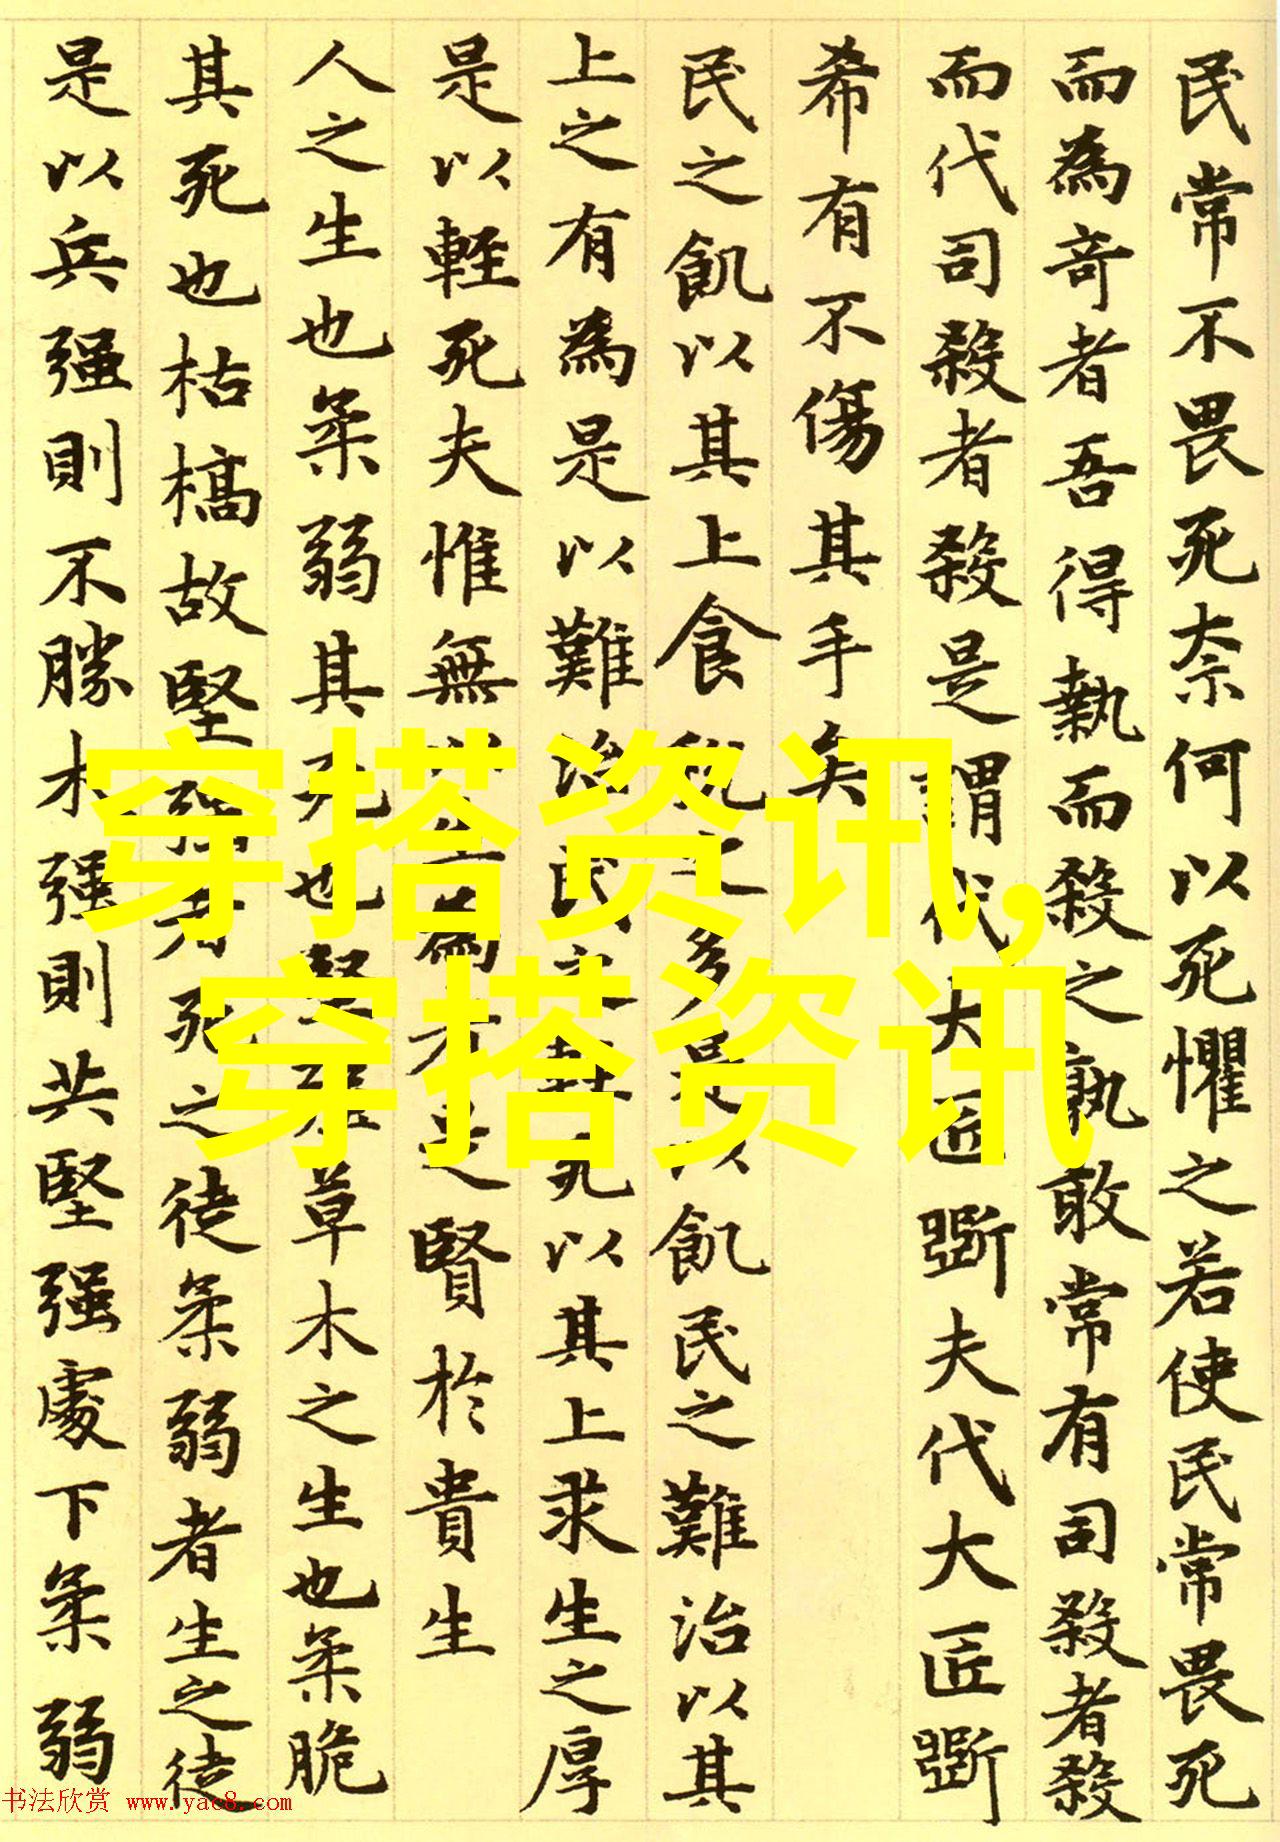 民常不畏死奈何以死懼之若使民常畏死
而為竒者吾得執而殺之孰敢常有司殺者殺
而代司殺者殺是謂代大匠斲夫代大匠斲
希有不傷其手矣
民之飢以其上食稅之多是以飢民之難治以其
上之有為是以難治民之輕死以其上求生之厚
是以輕死夫惟無以生為者是賢於貴生
人之生也柔弱其死也堅强草木之生也柔脆
其死也枯槁故堅强者死之徒柔弱者生之徒
是以兵强則不勝木强則共堅强處下柔弱
穿搭资讯,
穿搭资讯
书法欣赏 www.yac8.com